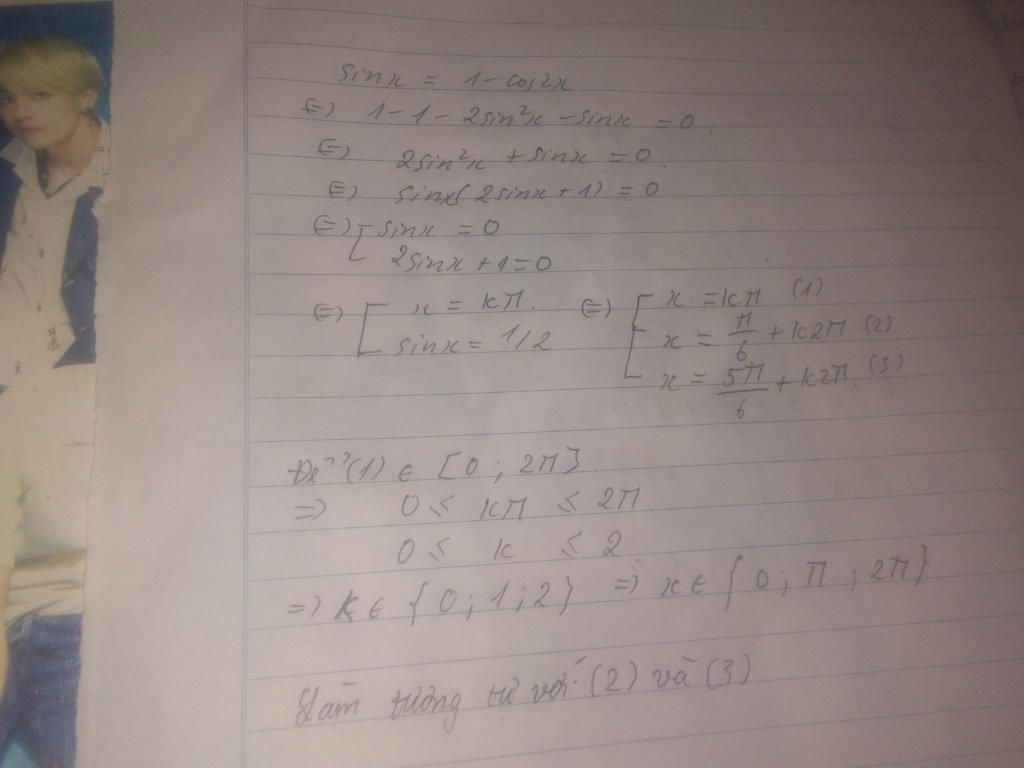 sinx = 1 - cos2x
⇔ 1 - 1 - 2sin²x - sinx = 0.
⇔ 2sin²x + sinx = 0.
⇔ sinx(2sinx + 1) = 0
⇔ [ sinx = 0
2sinx + 1 = 0
⇔ [ x = kπ. ⇔ [ x = kπ (1)
sinx = 1/2 x = π/6 + k2π (2)
x = 5π/6 + k2π. (3)
Để (1) ∈ [0 ; 2π].
=> 0 ≤ kπ ≤ 2π
0 ≤ k ≤ 2
=> k ∈ {0 ; 1 ; 2} => x ∈ {0 ; π ; 2π}
Làm tương tự với (2) và (3)